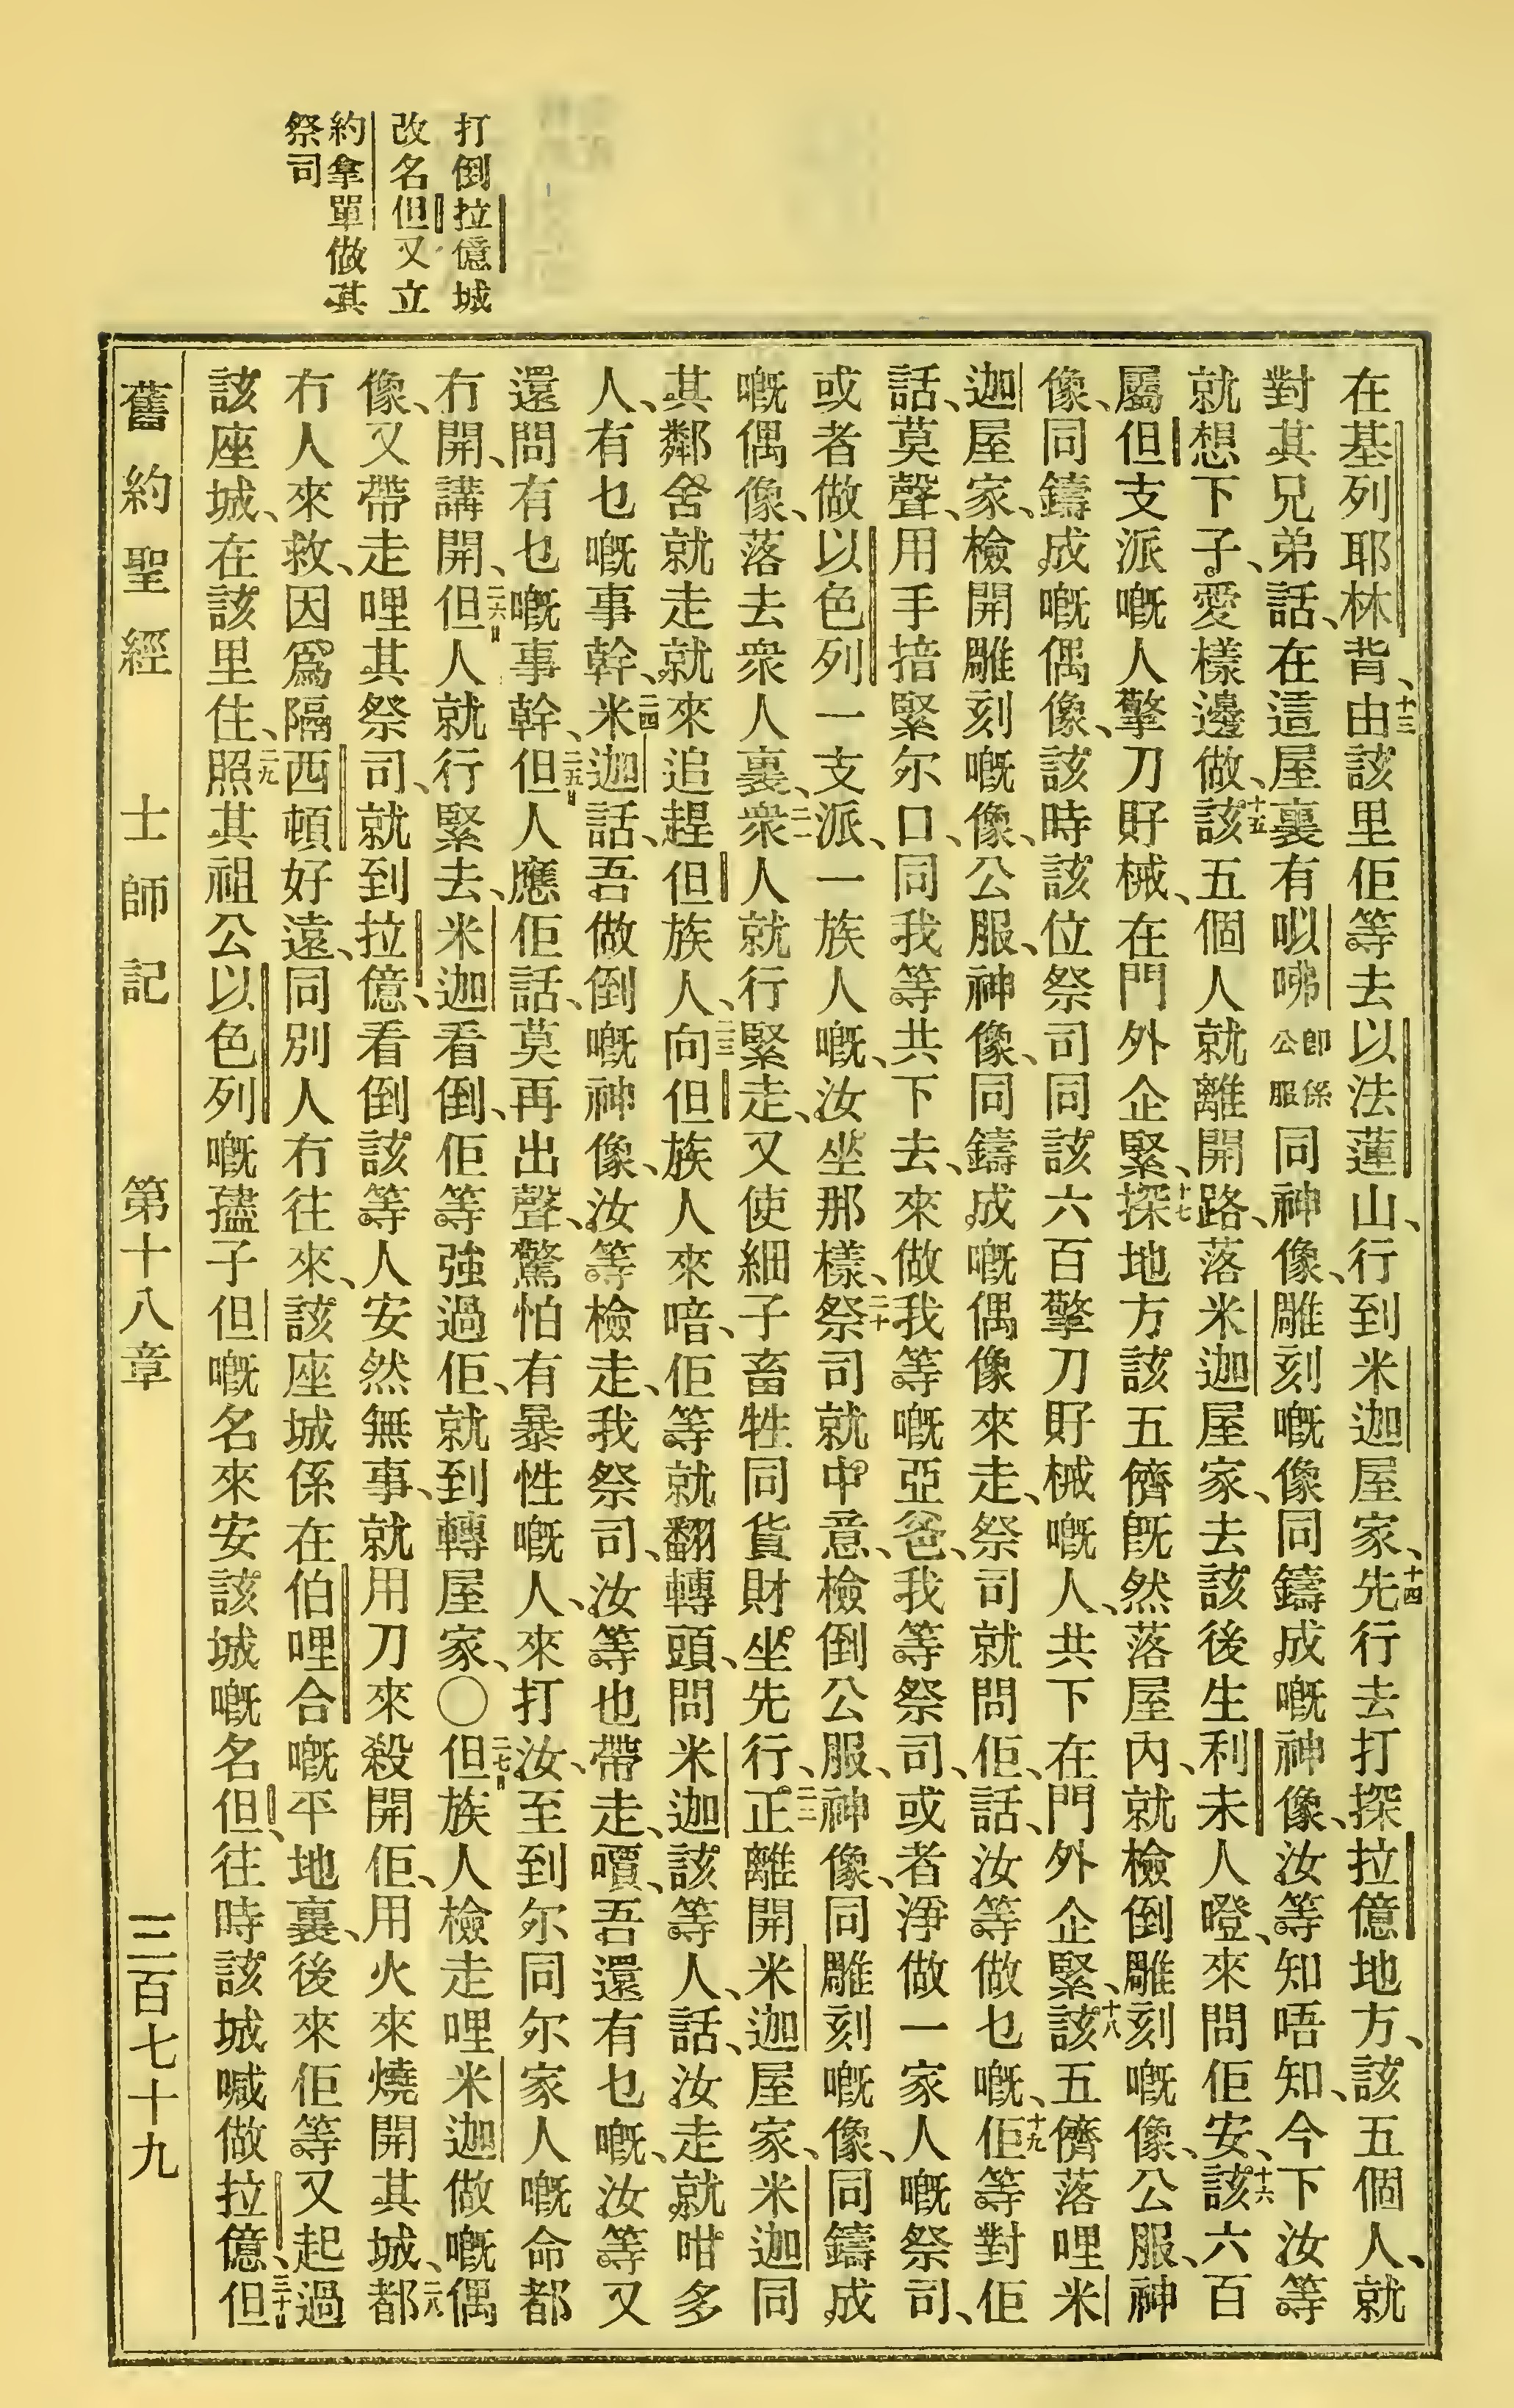 打倒拉億城
改名但又立
約拿單做其
祭司
在基列耶林背、十三由該里佢等去以法蓮山、行到米迦屋家、十四先行去打探拉億地方、該五個人、就
對其兄弟話、在這屋裏有㕽咈即係公服同神像、雕刻嘅像同鑄成嘅神像、汝等知唔知、今下汝等
就想下子、愛樣邊做、十五該五個人就離開路、落米迦屋家、去該後生利未人噔、來問佢安、十六該六百
屬但支派嘅人擎刀㱔械、在門外企緊、十七探地方該五儕既然落屋內、就檢倒雕刻嘅像、公服、神
像、同鑄成嘅偶像、該時該位祭司同該六百擎刀㱔械嘅人、共下在門外企緊、十八該五儕落哩米
迦屋家、檢開雕刻嘅像、公服、神像、同鑄成嘅偶像來走、祭司就問佢、話、汝等做乜嘅、十九佢等對佢
話、莫聲、用手揞緊尔口、同我等共下去、來做我等嘅亞爸、我等祭司、或者淨做一家人嘅祭司、
或者做以色列一支派、一族人嘅、汝坐那樣、二十祭司就中意、檢倒公服、神像、同雕刻嘅像、同鑄成
嘅偶像、落去衆人裏、二一衆人就行緊走、又使細子畜牲同貨財坐先行、二二正離開米迦屋家、米迦同
其鄰舍就走就來追趕但族人、二三向但族人來喑、佢等就翻轉頭、問米迦該等人、話、汝走就咁多
人、有乜嘅事幹、二四米迦話、吾做倒嘅神像、汝等檢走、我祭司、汝等也帶走、嘪、吾還有乜嘅、汝等又
還問有乜嘅事幹、二五但人應佢話、莫再出聲、驚怕有暴性嘅人、來打汝、至到尔同尔家人嘅命都
冇開、講開、二六但人就行緊去、米迦看倒、佢等強過佢、就到轉屋家、〇二七但族人檢走哩米迦做嘅偶
像、又帶走哩其祭司、就到拉億、看倒該等人安然無事、就用刀來殺開佢、用火來燒開其城、二八都
冇人來救、因爲隔西頓好遠、同別人冇往來、該座城係在伯哩合嘅平地裏、後來佢等又起過
該座城、在該里住、二九照其祖公以色列嘅孻子但嘅名來安該城嘅名但、往時該城喊做拉億、三十但
舊約聖經 士師記 第十八章 三百七十九